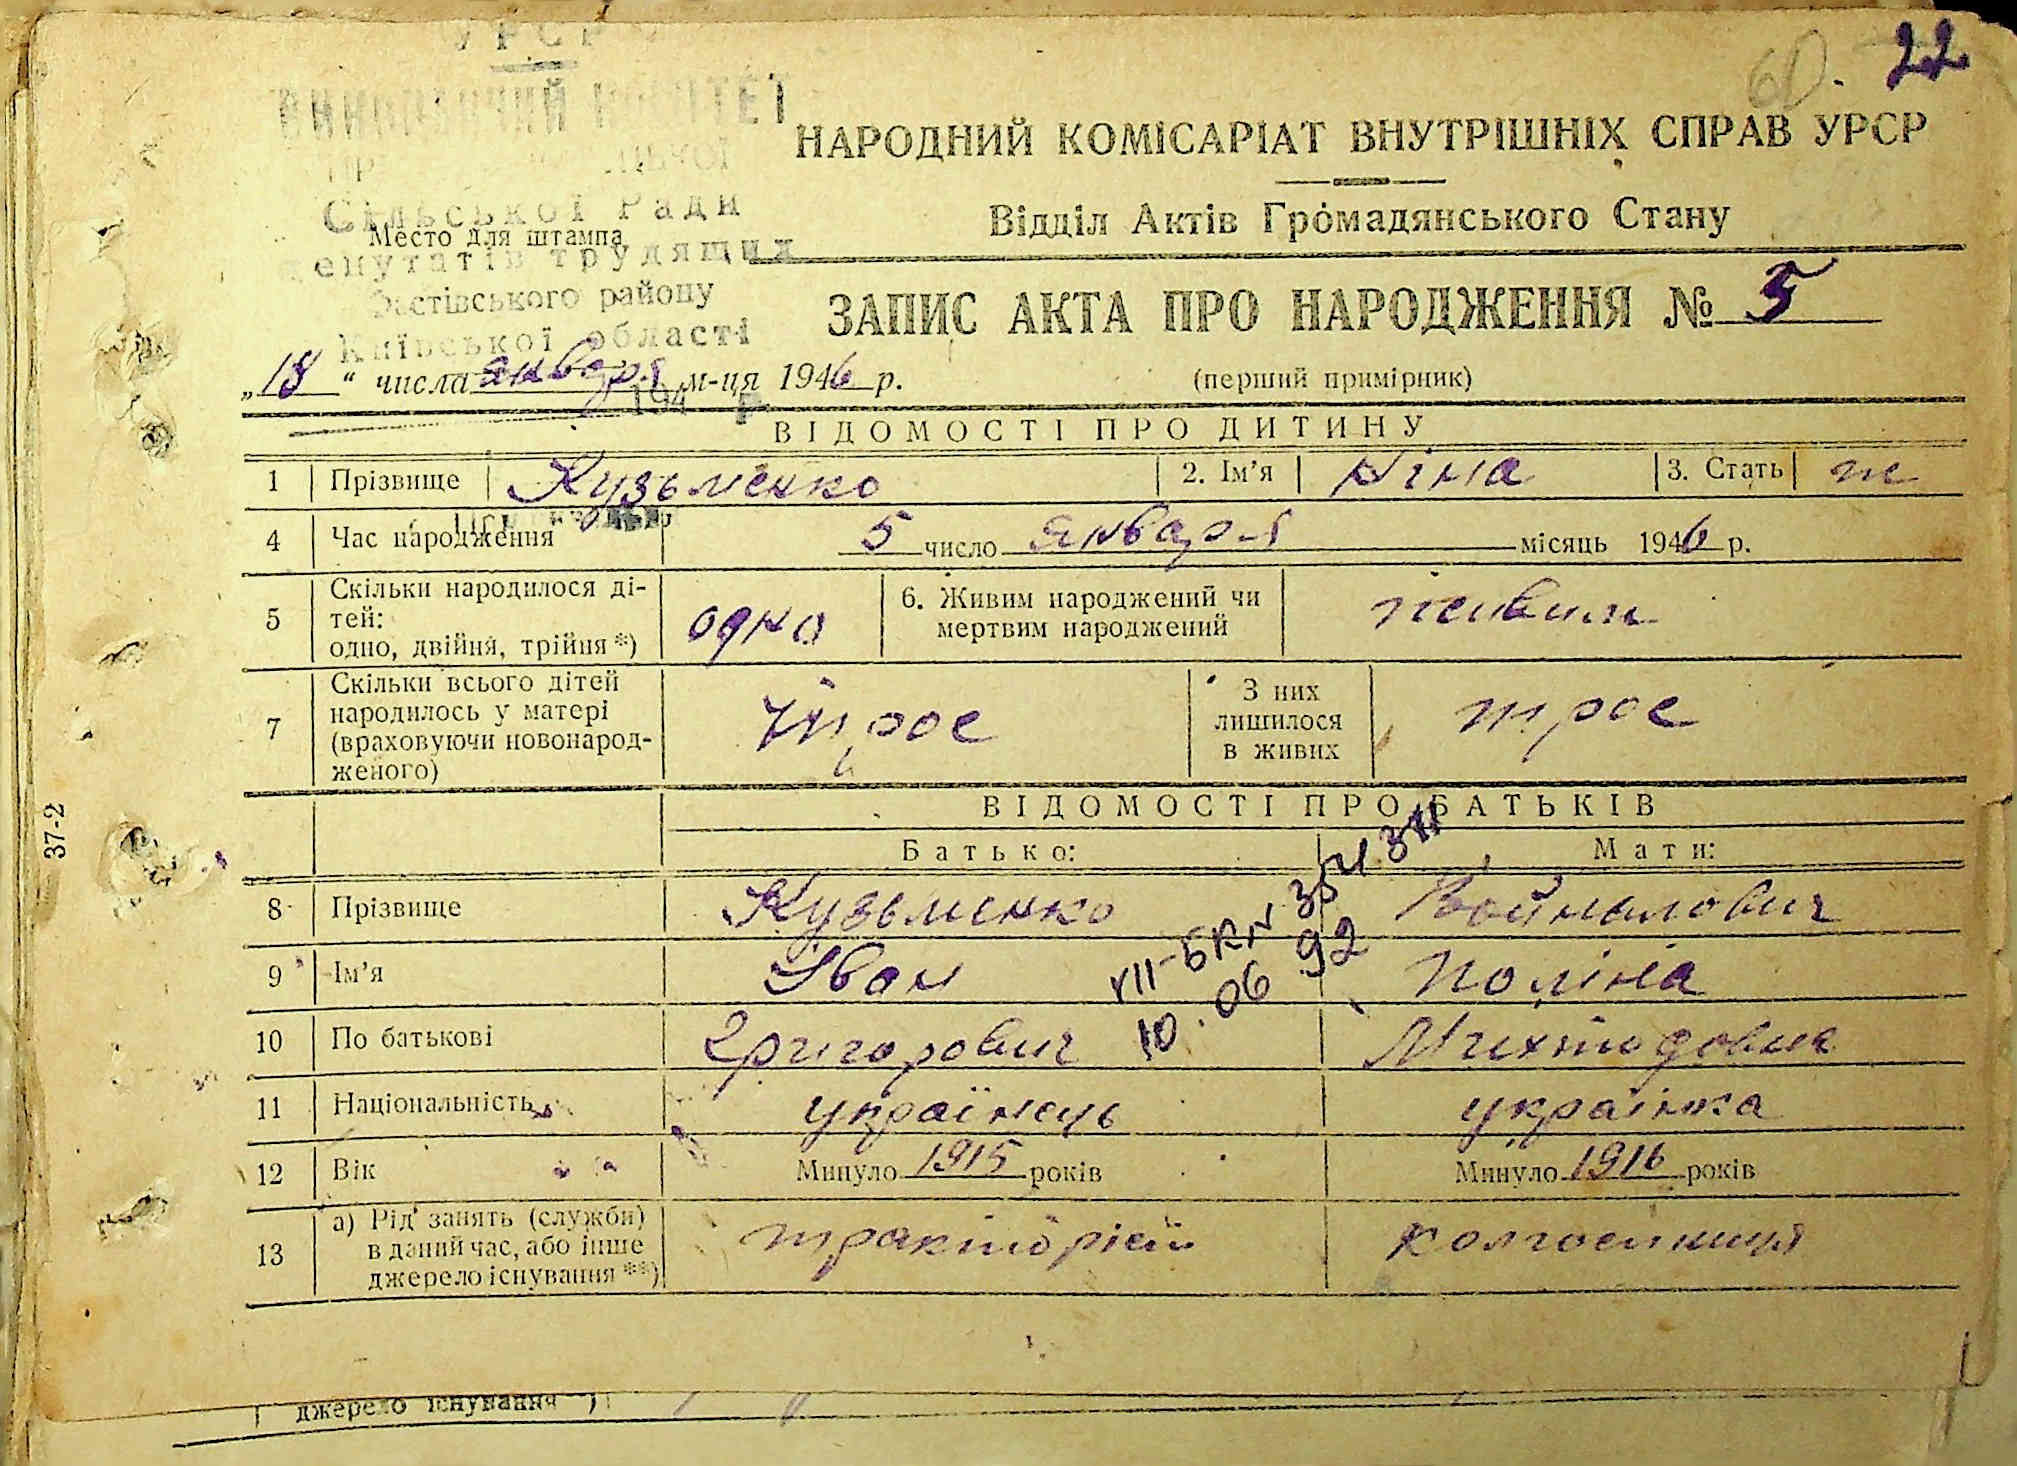 УРСР
22
60.
ВИКОНАВЧИЙ КОМІТЕТ
НАРОДНИЙ КОМІСАРІАТ ВНУТРІШНІХ СПРАВ УРСР
Сільської Ради
Место для штампа
Відділ Актів Громадянського Стану
депутатів трудящих
Фастівського району
Київської області
ЗАПИС АКТА ПРО НАРОДЖЕННЯ № 5
„18“ числа января м-ця 1946 р.
(перший примірник)
194 р.
ВІДОМОСТІ ПРО ДИТИНУ
1 Прізвище Кузьменко 2. Ім’я Ніна 3. Стать ж
4 Час народження 5 число января місяць 1946 р.
5 Скільки народилося ді-
тей:
одно, двійня, трійня *) одна
6. Живим народжений чи
мертвим народжений живим
7 Скільки всього дітей
народилось у матері
(враховуючи новонарод-
женого) трое
З них
лишилося
в живих трое
37-2
ВІДОМОСТІ ПРО БАТЬКІВ
Батько: Мати:
8 Прізвище Кузьменко Войналович
9 Ім’я Іван Поліна
10.06 92
10 По батькові Григорович
11 Національність українець українка
12 Вік Минуло 1915 років Минуло 1916 років
13 а) Рід занять (служби)
в даний час, або інше
джерело існування **) тракторіст колгоспниця
джерело існування **)